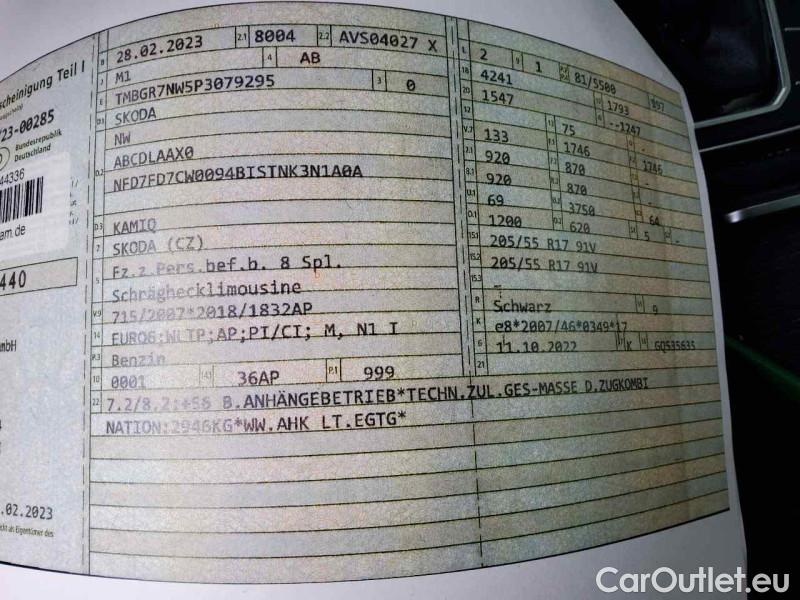 scheinigung Teil I
23-00285
Bundesrepublik
Deutschland
44336
am.de
440
mbH
.02.2023
B 28.02.2023 2.1 8004 2.2 AVS04027 X
J M1 4 AB
E TMBGR7NW5P3079295 3 0
D.1 SKODA
NW
D.2 ABCDLAAX0
NFD7FD7CW0094BISTNK3N1A0A
D.3 KAMIQ
2 SKODA (CZ)
5 Fz.z.Pers.bef.b. 8 Spl.
Schräghecklimousine
V.9 715/2007*2018/1832AP
14 EURO6;WLTP;AP;PI/CI; M, N1 I
P.3 Benzin
10 0001 14.1 36AP P.1 999
22 7.2/8.2:+56 B.ANHÄNGEBETRIEB*TECHN.ZUL.GES-MASSE D.ZUGKOMBI
NATION:2946KG*WW.AHK LT.EGTG*
L 2 9 1 81/5500
18 4241
20 1547 1793
12 - --1247
V.7 133 75
7.1 920 1746 1746
8.1 920 870 -
U.1 69 870 -
O.1 1200 3750 64
620 5 -
15.1 205/55 R17 91V
15.2 205/55 R17 91V
15.3 -
R Schwarz 9
K e8*2007/46*0349*17
6 11.10.2022 17 K 16 GQ535635
21
CarOutlet.eu